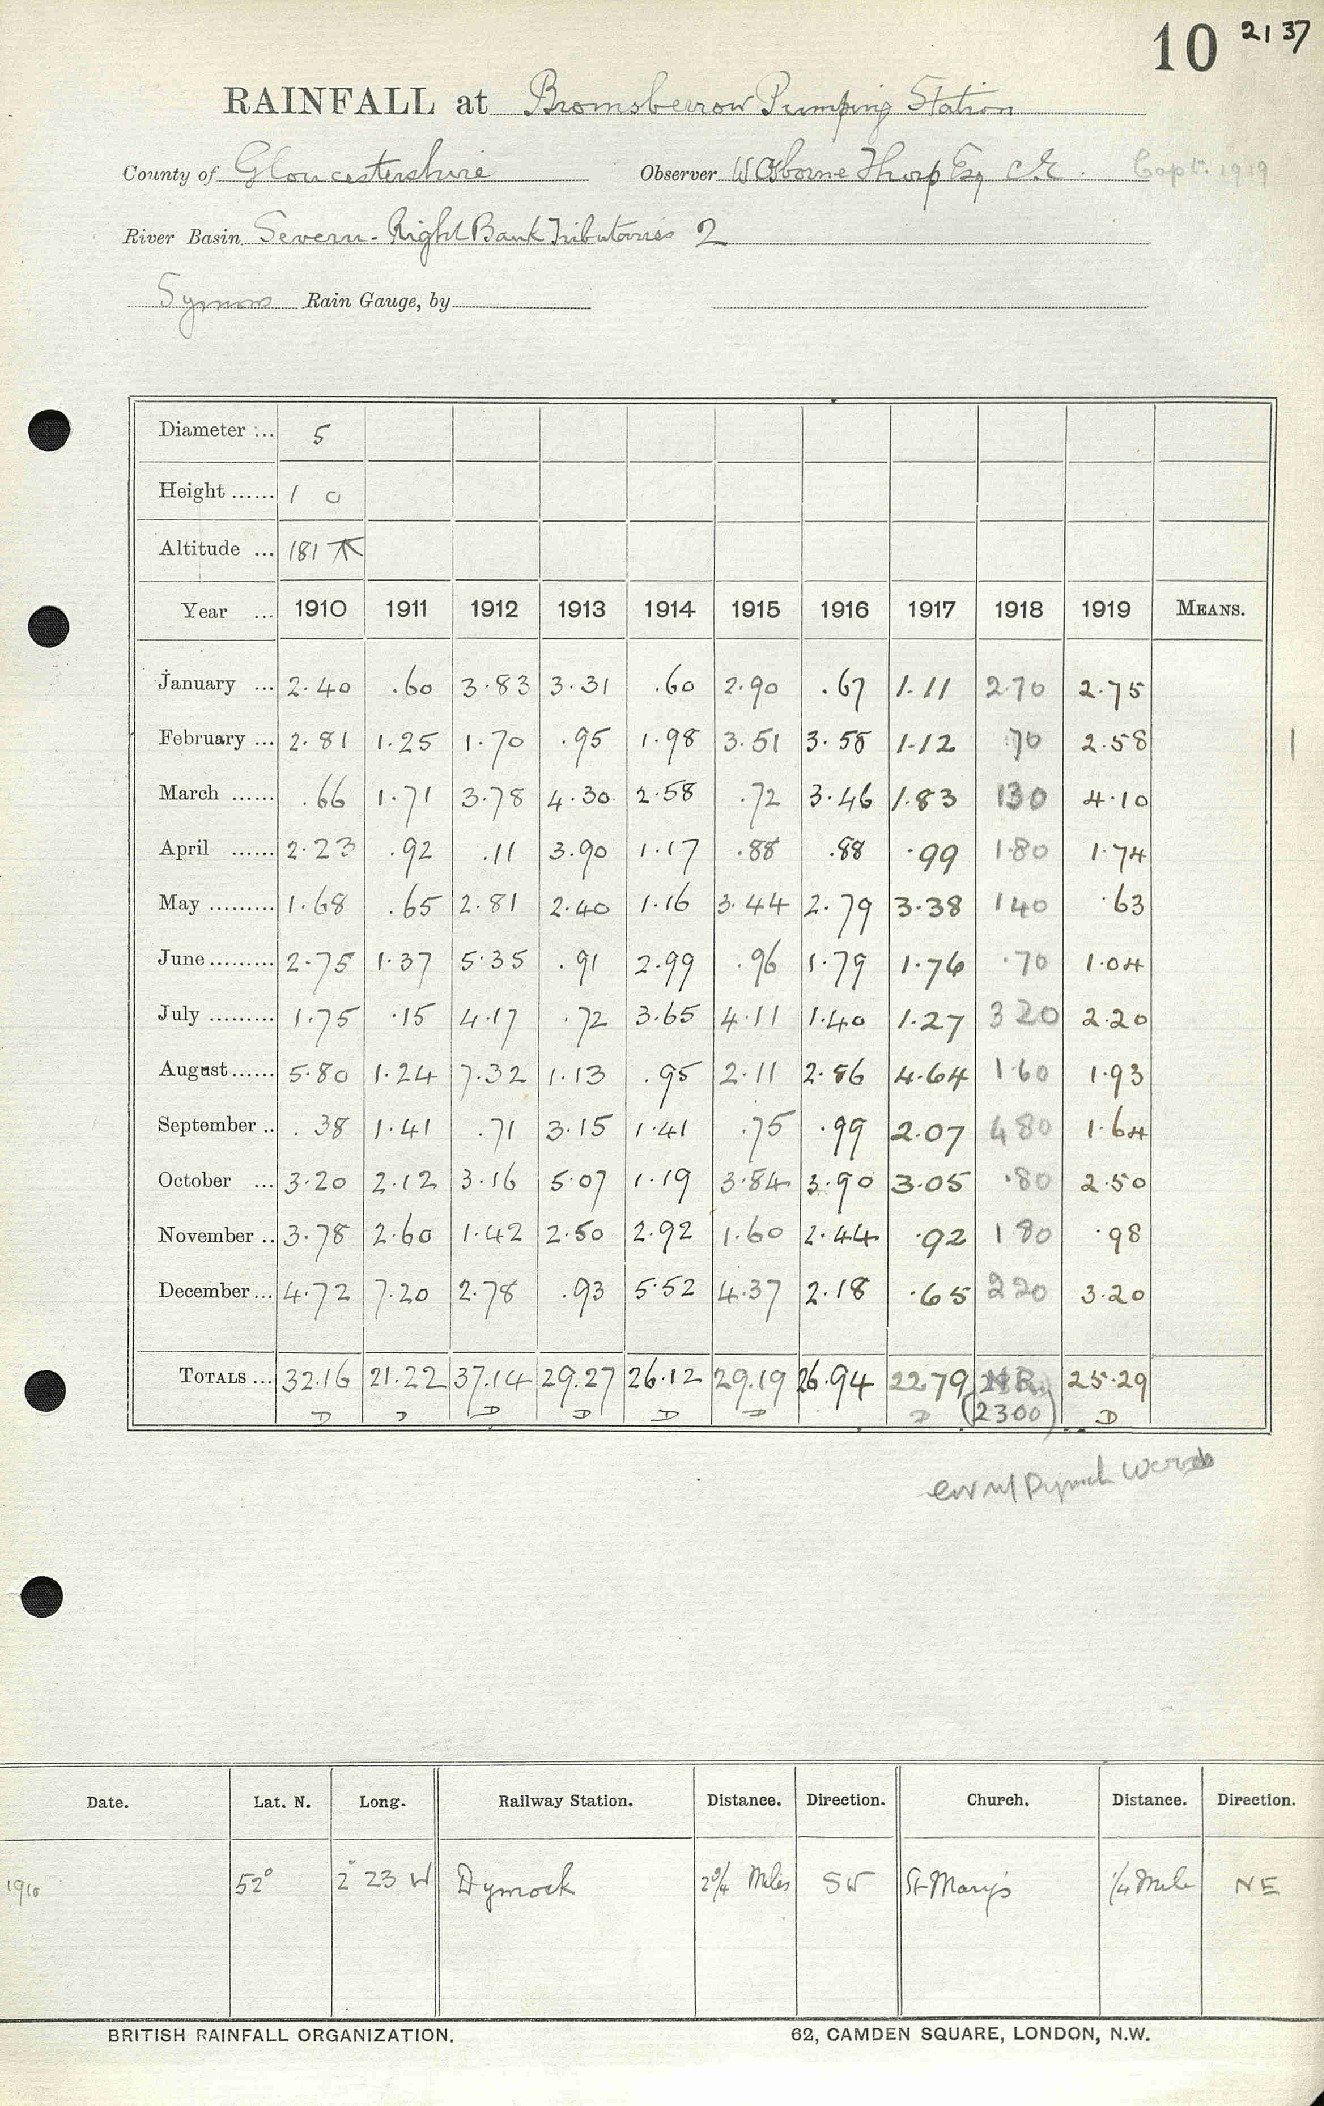 10 2137
RAINFALL at Bromsberrow Pumping Station
County of Gloucestershire Observer W Osborne Thorp Esq C.E. Capt. 1919
River Basin Severn - Right Bank Tributaries 2
Symons Rain Gauge, by
Diameter ... 5
Height ...... 1 0
Altitude ... 181
Year ... 1910 1911 1912 1913 1914 1915 1916 1917 1918 1919 MEANS.
January ... 2.40 .60 3.83 3.31 .60 2.90 .67 1.11 2.70 2.75
February ... 2.81 1.25 1.70 .95 1.98 3.51 3.58 1.12 .70 2.58
March ...... .66 1.71 3.78 4.30 2.58 .72 3.46 1.83 130 4.10
April ...... 2.23 .92 .11 3.90 1.17 .88 .88 .99 1.80 1.74
May ......... 1.68 .65 2.81 2.40 1.16 3.44 2.79 3.38 140 .63
June ......... 2.75 1.37 5.35 .91 2.99 .96 1.79 1.76 .70 1.04
July ......... 1.75 .15 4.17 .72 3.65 4.11 1.40 1.27 320 2.20
August ...... 5.80 1.24 7.32 1.13 .95 2.11 2.86 4.64 1.60 1.93
September .. .38 1.41 .71 3.15 1.41 .75 .99 2.07 480 1.64
October ... 3.20 2.12 3.16 5.07 1.19 3.84 3.90 3.05 .80 2.50
November .. 3.78 2.60 1.42 2.50 2.92 1.60 2.44 .92 180 .98
December ... 4.72 7.20 2.78 .93 5.52 4.37 2.18 .65 220 3.20
TOTALS ... 32.16 21.22 37.14 29.27 26.12 29.19 26.94 22.79 25.29
D D D D D D D (2300) D
Dymock
Date. Lat. N. Long. Railway Station. Distance. Direction. Church. Distance. Direction.
1910 52° 2° 23 W Dymock 2 3/4 Miles SW St Mary's 1/4 Mile NE
BRITISH RAINFALL ORGANIZATION. 62, CAMDEN SQUARE, LONDON, N.W.